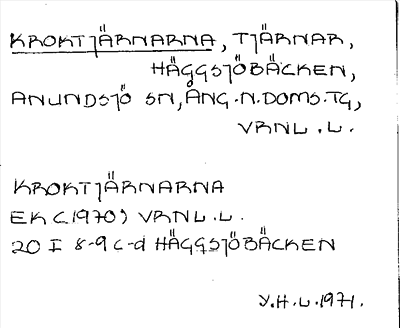 KROKTJÄRNARNA, TJÄRNAR,
HÄGGSJÖBÄCKEN,
ANUNDSJÖ SN, ÅNG.N.DOMS.TG,
VRNL.L.
KROKTJÄRNARNA
EK (1970) VRNL.L.
20 I 8-9 c-d HÄGGSJÖBÄCKEN
Y.H.L.1971.